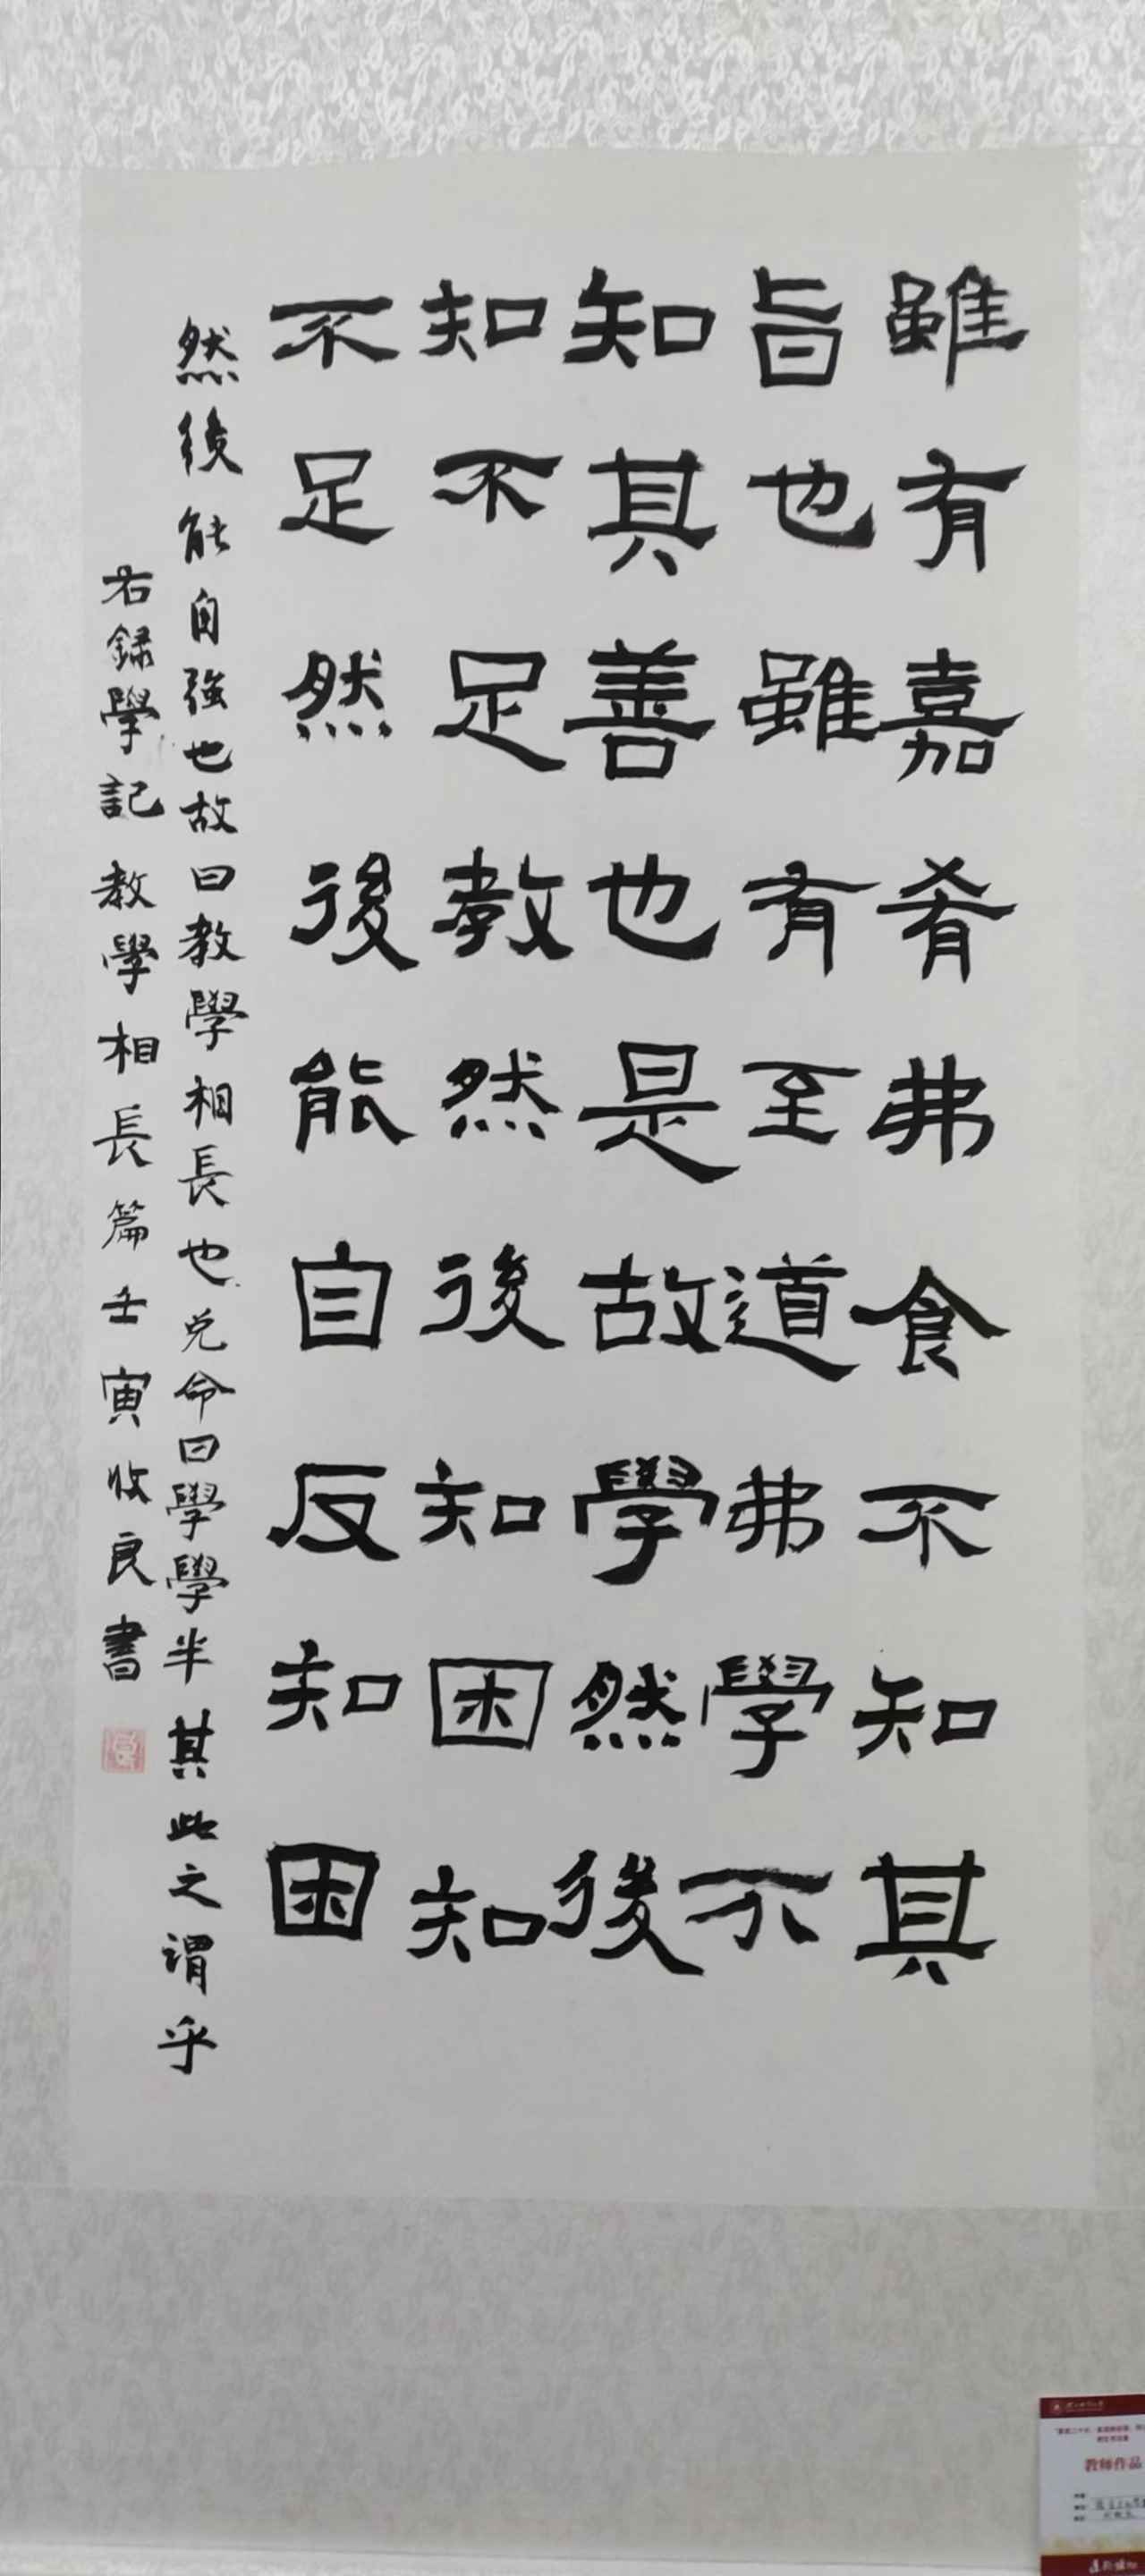 雖有嘉肴弗食不知其
旨也雖有至道弗學不
知其善也是故學然後
知不足教然後知困知
不足然後能自反知困
然後能自強也故曰教學相長也兌命曰學學半其此之謂乎
右録學記教學相長篇壬寅收良書
教師作品